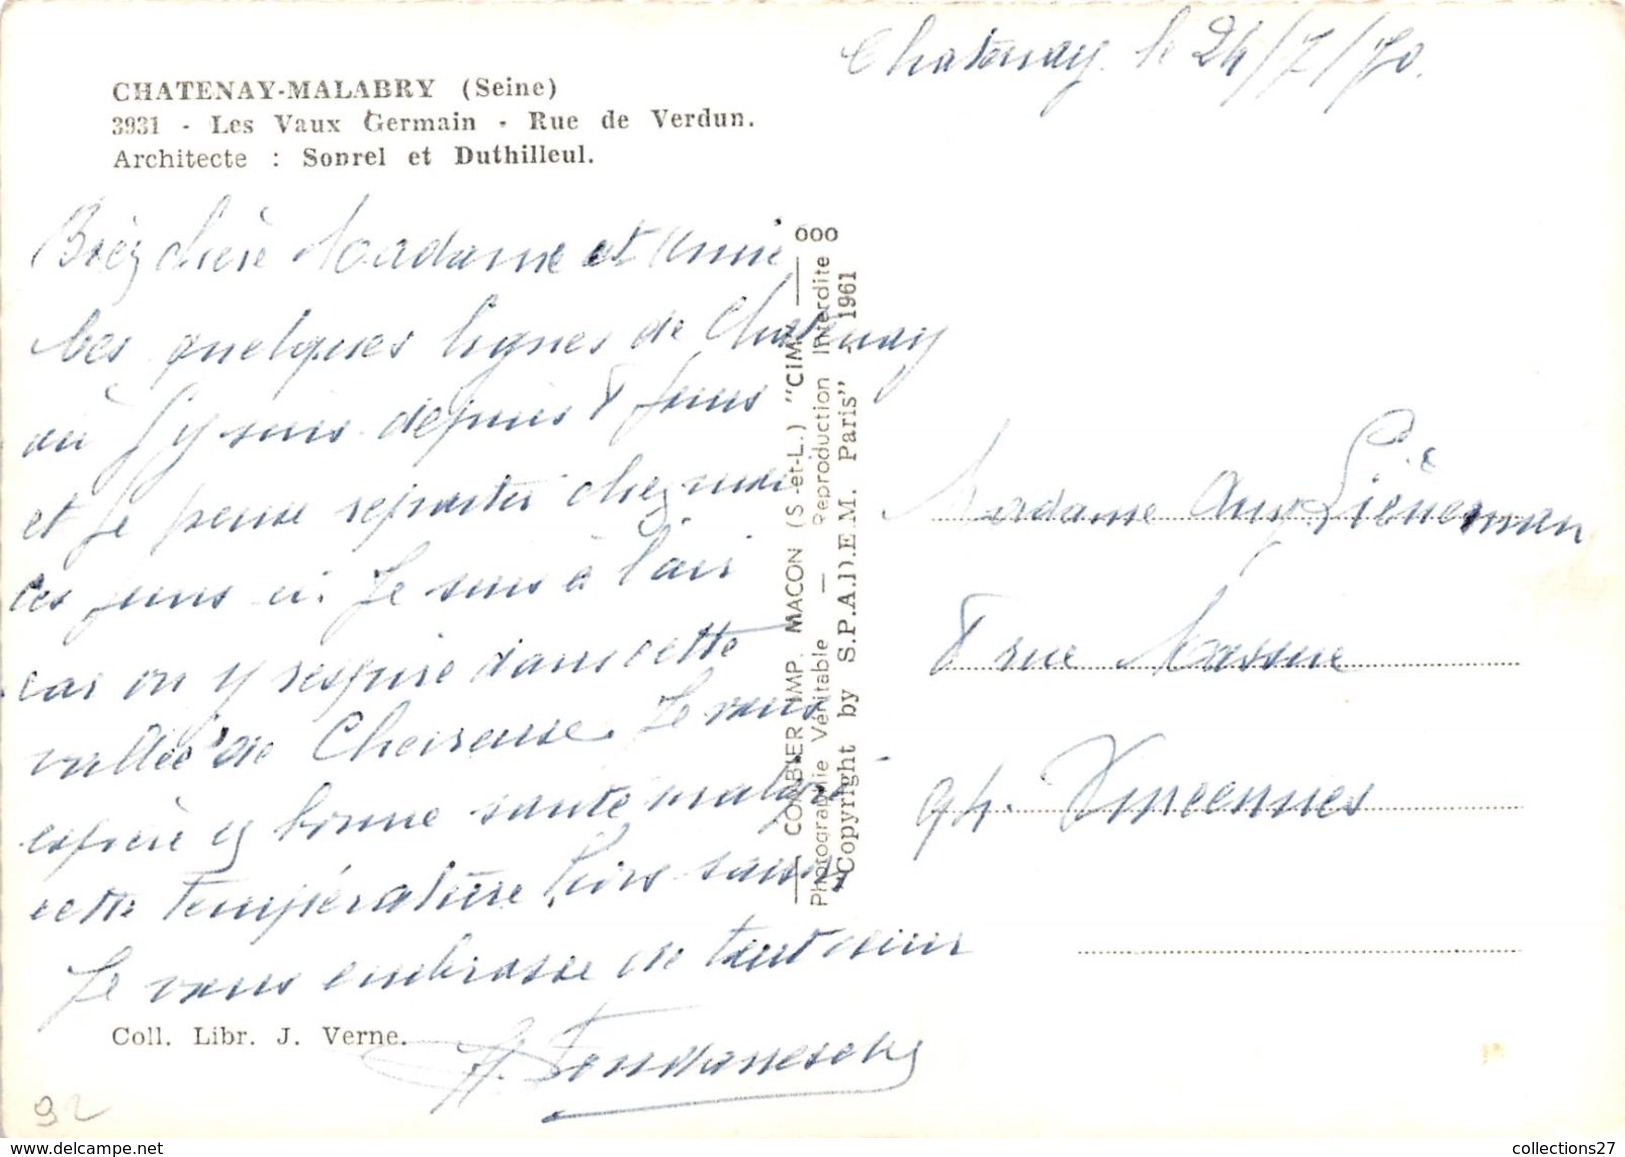 Chatenay le 24/7/70.
CHATENAY-MALABRY (Seine)
3931 - Les Vaux Germain - Rue de Verdun.
Architecte : Sonrel et Duthilleul.
chère Madame et Annie
Ces quelques lignes de Chatenay
où j'y suis depuis 8 jours
et je pense repartir chez moi
ces jours ci. Je suis à l'air
car on y respire dans cette
vallée de Chevreuse. Je vous
espère en bonne santé malgré
cette température hors saison
Je vous embrasse de tout cœur
Coll. Libr. J. Verne.
92
COMBIER IMP. MACON (S.-et-L.) "CIM"
Photographie Véritable — Reproduction Interdite
Copyright by S.P.A.D.E.M. Paris" - 1961
000
Madame
8 rue Massue
94. Vincennes
collections27